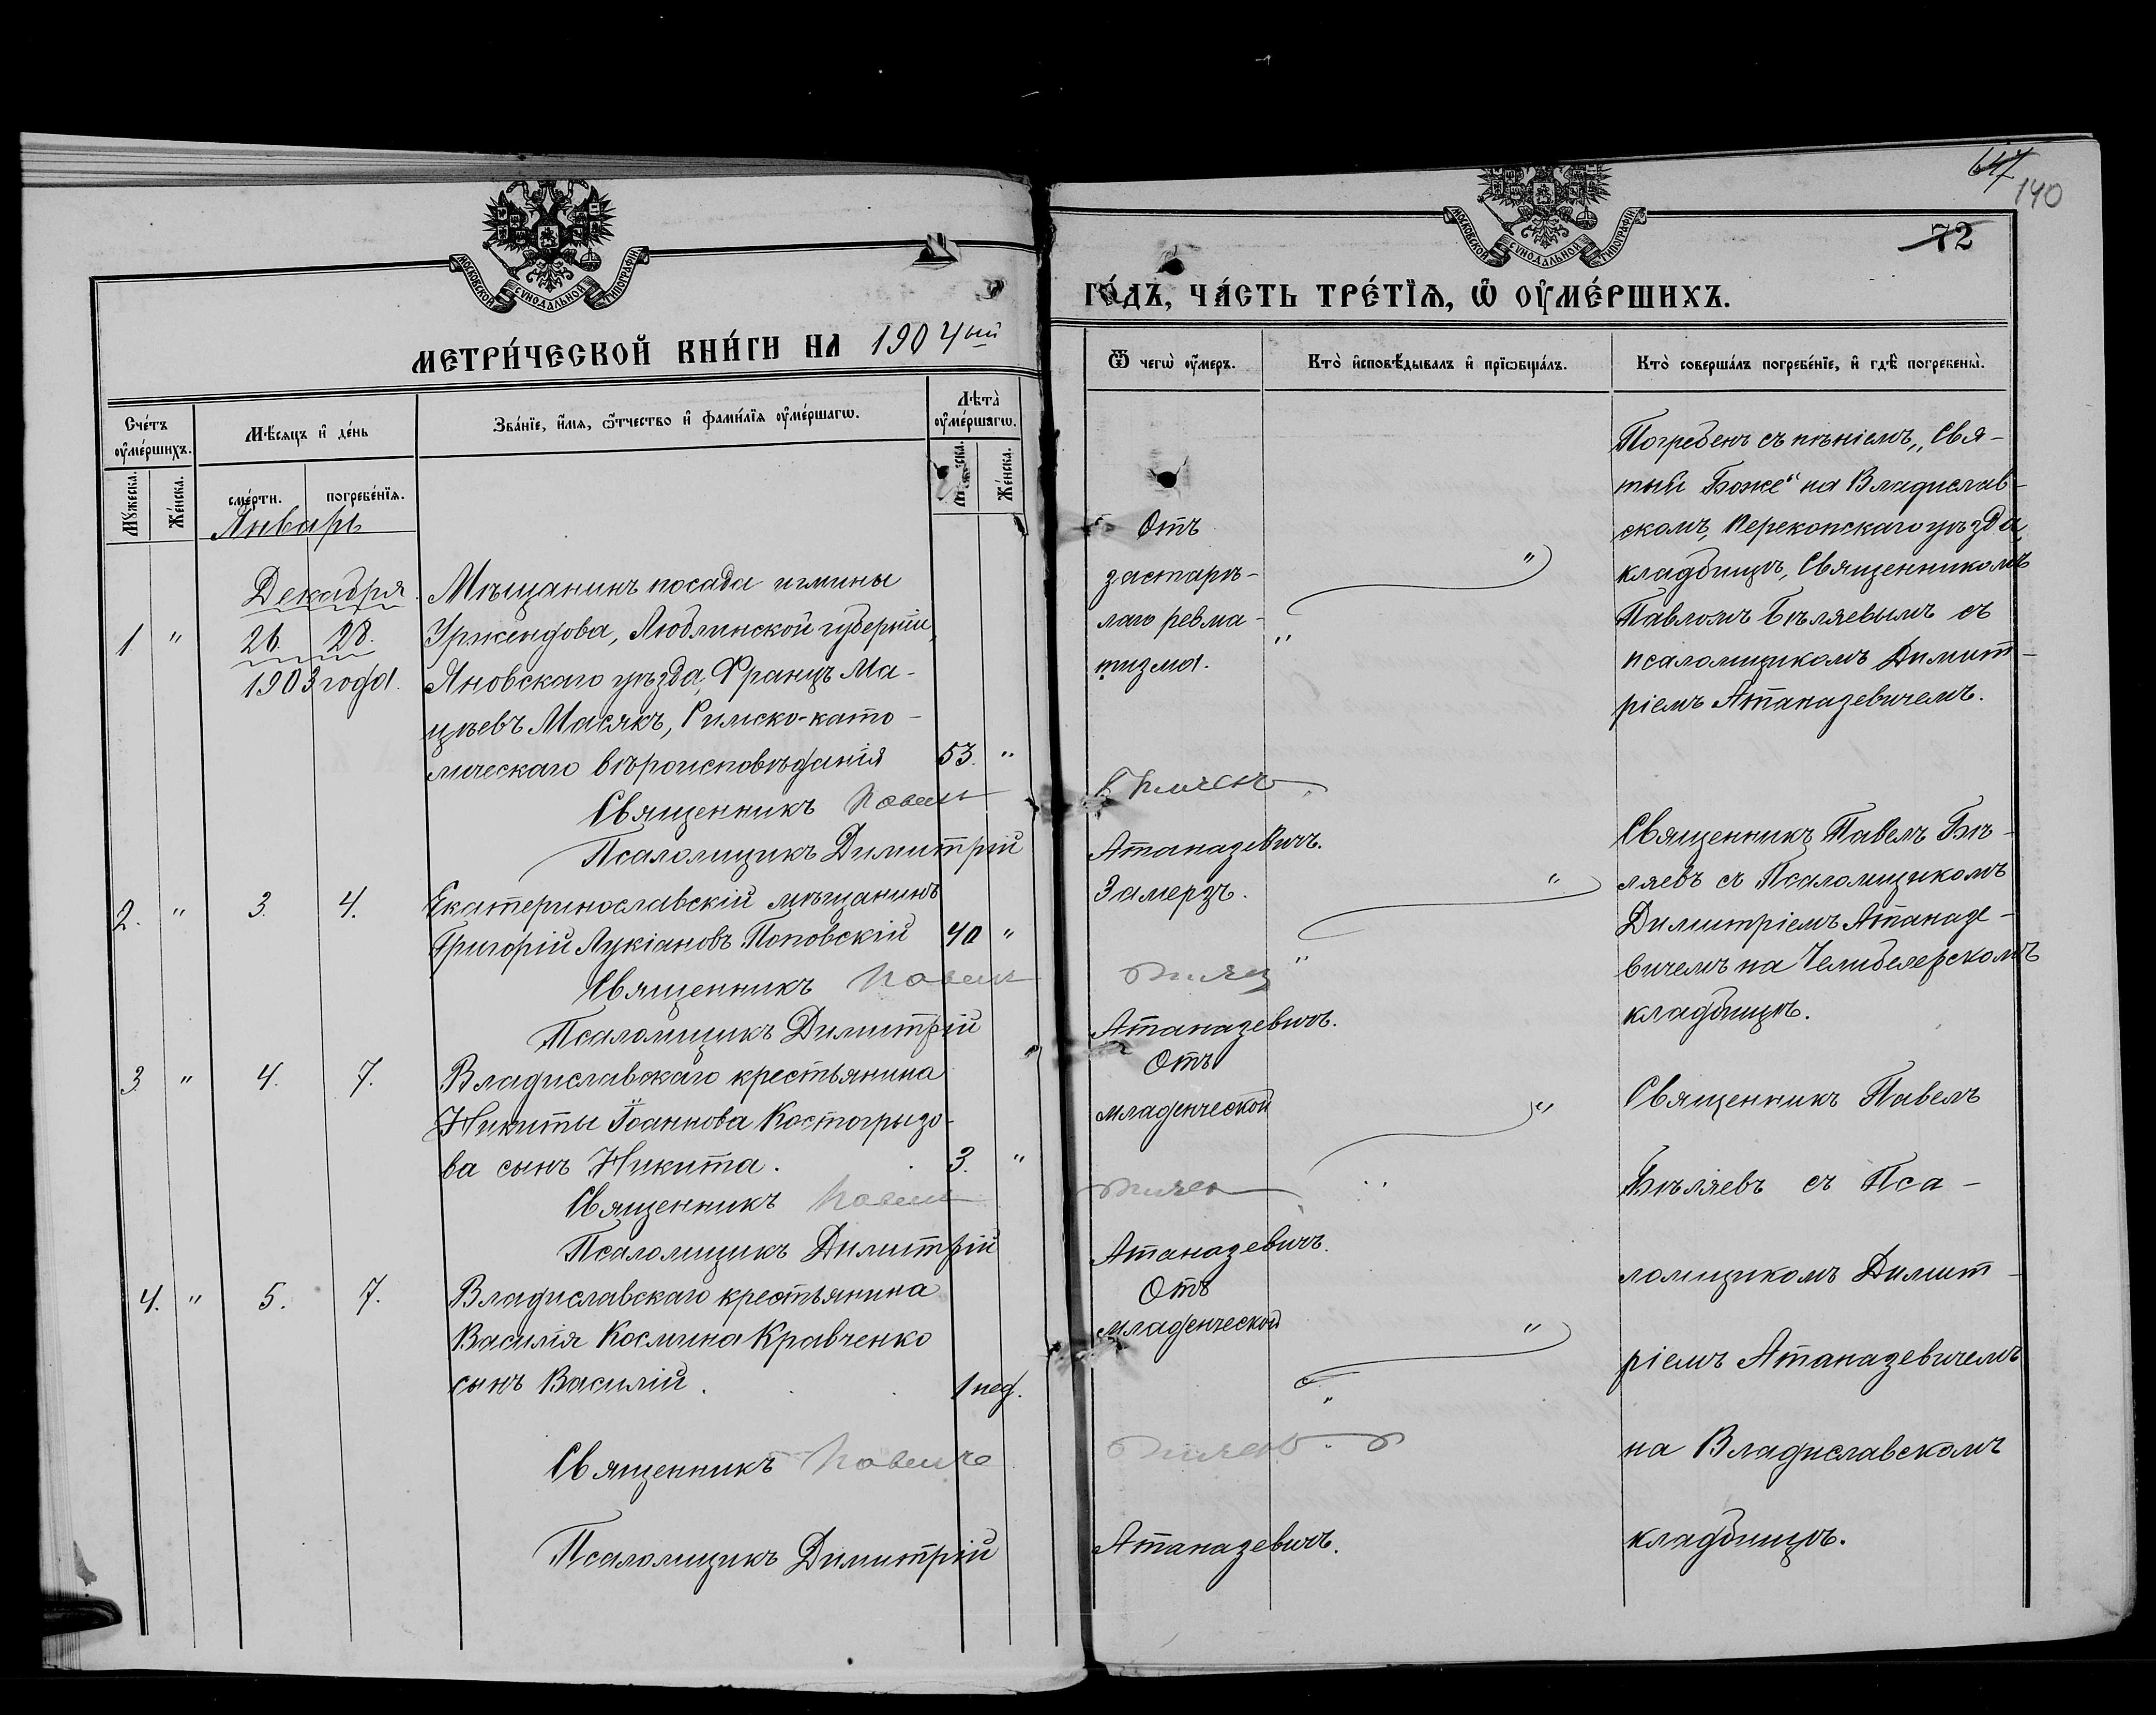 МОСКОВСКОЙ СѴНОДАЛЬНОЙ ТИПОГРАФІИ
МЕТРИ́ЧЕСКОЙ КНИ́ГИ НА 1904ый
Сче́тъ ᲂу҆ме́ршихъ.
Мѣ́сяцъ и҆ де́нь
Зва́нїе, и҆́мѧ, ѻ҆́тчество и҆ фами́лїѧ ᲂу҆ме́ршагѡ.
Лѣта̀ ᲂу҆ме́ршагѡ.
Мꙋ́жеска.
Же́нска.
сме́рти.
погребе́нїѧ.
Же́нска.
Январь
Декабря
1 " 26. 28.
1903 года.
Мѣщанинъ посада гмины
Уржендова, Люблинской губерніи,
Яновскаго уѣзда, Францъ Ма-
цѣевъ Масякъ, Римско-като-
лическаго вѣроисповѣданія 53. "
Священникъ Павелъ
Псаломщикъ Димитрій
2. " 3. 4. Екатеринославскій мѣщанинъ
Григорій Лукіановъ Поповскій 40 "
Священникъ Павелъ
Псаломщикъ Димитрій
3 " 4. 7. Владиславскаго крестьянина
Никиты Іоаннова Костогрызо-
ва сынъ Никита. 3. "
Священникъ Павелъ
Псаломщикъ Димитрій
4. " 5. 7. Владиславскаго крестьянина
Василія Космина Кравченко
сынъ Василій. 1 нед.
Священникъ Павелъ
Псаломщикъ Димитрій
140
72
МОСКОВСКОЙ СѴНОДАЛЬНОЙ ТИПОГРАФІИ
ГО́ДЪ, ЧА́СТЬ ТРЕ́ТЇѦ, Ѡ҆ ОУ҆МЕ́РШИХЪ.
Ѿ чегѡ̀ ᲂу҆́меръ.
Кто̀ и҆сповѣ́дывалъ и҆ прїѡбща́лъ.
Кто̀ соверша́лъ погребе́нїе, и҆ гдѣ̀ погребены̀.
Отъ
застарѣ-
лаго ревма-
тизма.
"
"
Погребенъ съ пѣніемъ „Свя-
тый Боже“ на Владислав-
скомъ, Перекопскаго уѣзда,
кладбищѣ, Священникомъ
Павломъ Бѣляевымъ съ
псаломщикомъ Димит-
ріемъ Атаназевичемъ.
Атаназевичъ.
Замерзъ.
"
"
Священникъ Павелъ Бѣ-
ляевъ съ Псаломщикомъ
Димитріемъ Атаназе-
вичемъ на Челибелерскомъ
кладбищѣ.
Атаназевичъ.
Отъ
младенческой
"
Атаназевичъ.
Отъ
младенческой
"
"
Атаназевичъ.
Священникъ Павелъ
Бѣляевъ съ Пса-
ломщикомъ Димит-
ріемъ Атаназевичемъ
на Владиславскомъ
кладбищѣ.